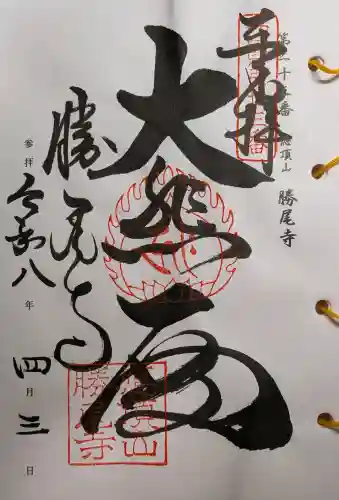 第二十三番 応頂山 勝尾寺
奉拝
大悲殿
勝尾寺
参拝 令和八年 四月三日
應頂山
勝尾寺